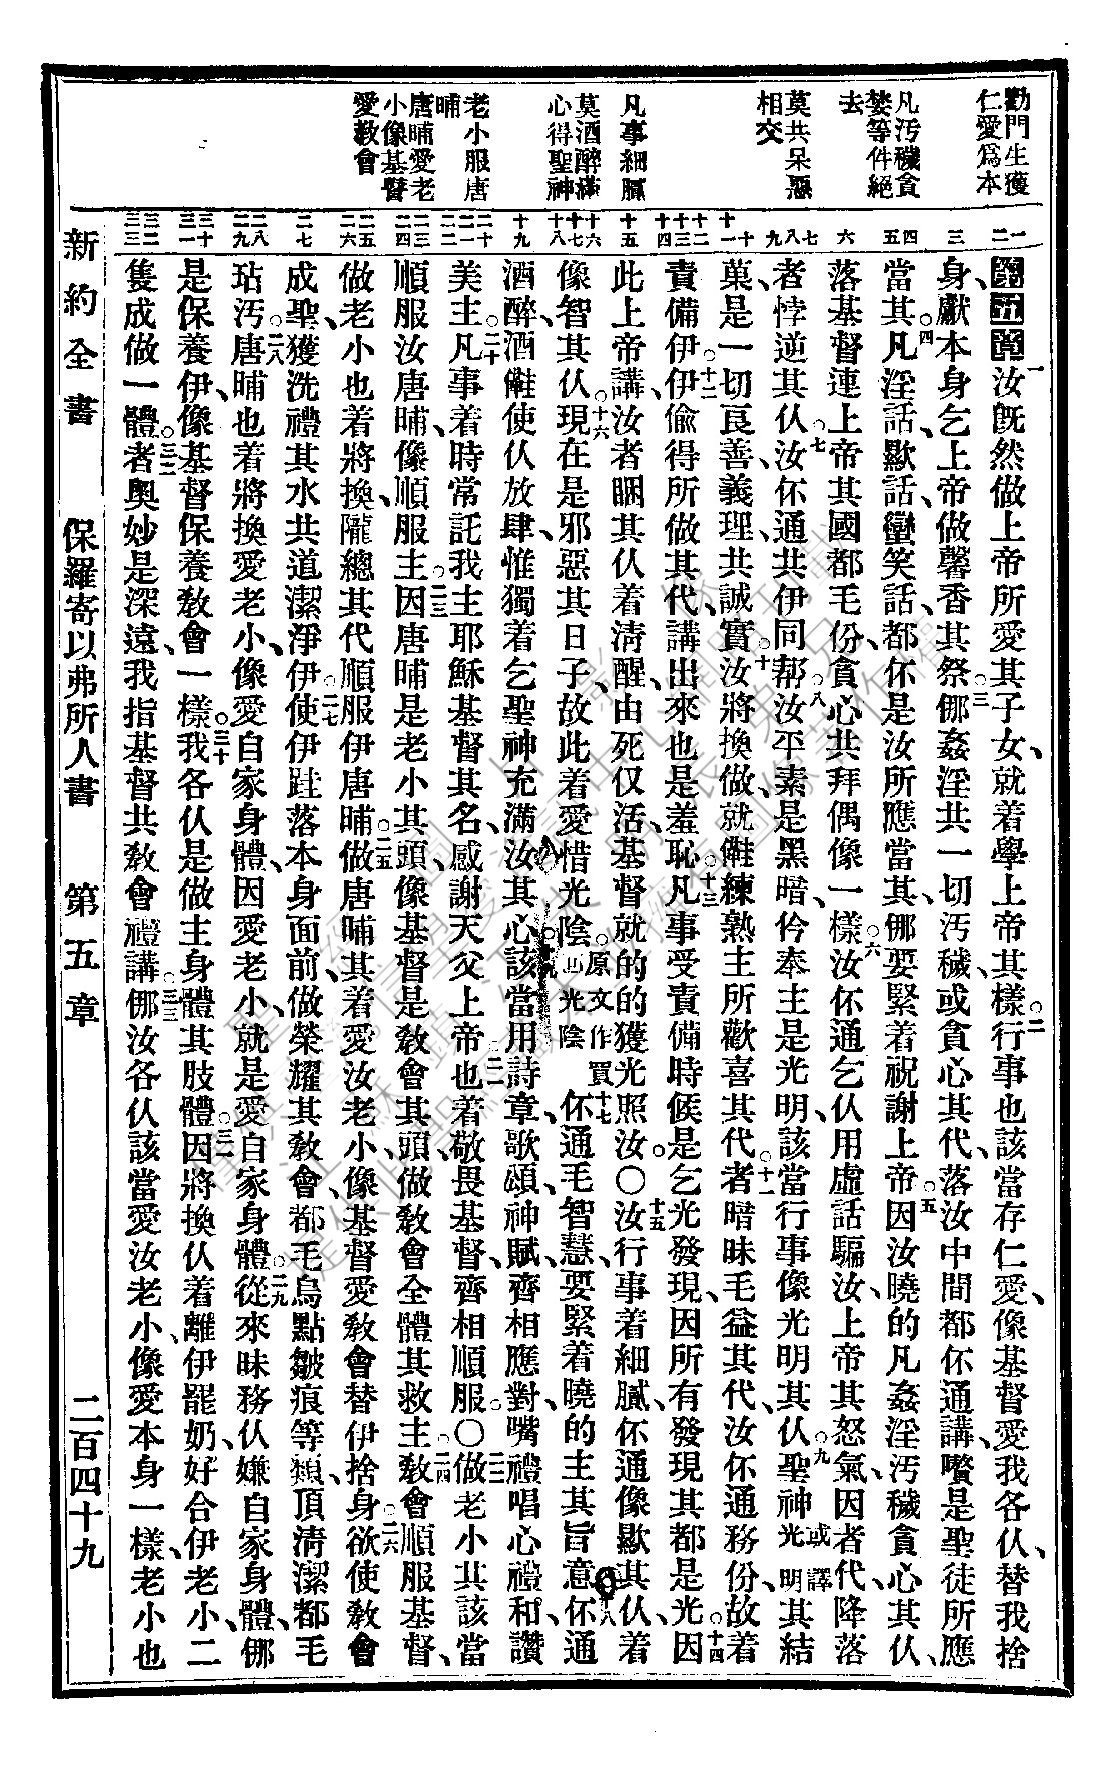 勸門生獲
仁愛爲本
凡汚穢貪
婪等件絕
去
莫共呆惡
相交
凡事細膩
莫酒醉滿
心得聖神
老小服唐
晡
唐晡愛老
小像基督
愛敎會
一二
三
四五
六
七八九
十十一
十二十三十四
十五
十六十七十八
十九
二十二一二二
二三二四
二五二六
二七
二八二九
三十三一
三二三三
第五章一汝旣然做上帝所愛其子女、就着學上帝其樣。二行事也該當存仁愛、像基督愛我各仈、替我捨
身、獻本身乞上帝、做馨香其祭。三㑚姦淫共一切汚穢、或貪心其代、落汝中間都伓通講、嚽是聖徒所應
當其。四凡淫話、歎話、蠻笑話、都伓是汝所應當其、㑚要緊着祝謝上帝。五因汝曉的凡姦淫汚穢貪心其仈、
落基督連上帝其國都毛份、貪心共拜偶像一樣。六汝伓通乞仈用虛話騙汝、上帝其怒氣因者代降落
者悖逆其仈。七汝伓通共伊同帮。八汝平素是黑暗、仱奉主是光明、該當行事像光明其仈。九聖神或譯光明其結
菓、是一切良善、義理、共誠實。十汝將換做、就𣍐練熟主所歡喜其代。十一者暗昧毛益其代、汝伓通務份、故着
責備伊。十二伊偸得所做其代、講出來也是羞恥。十三凡事受責備時候、是乞光發現、因所有發現其都是光。十四因
此上帝講、汝者睏其仈着淸醒、由死仅活、基督就的的獲光照汝。〇十五汝行事着細膩、伓通像歎其仈、着
像智其仈。十六現在是邪惡其日子、故此着愛惜光陰。原文作買回光陰十七伓通毛智慧、要緊着曉的主其旨意。十八伓通
酒醉、酒𣍐使仈放肆、惟獨着乞聖神充滿汝其心。十九該當用詩章、歌頌、神賦、齊相應對、嘴禮唱、心禮和、讚
美主。二十凡事着時常託我主耶穌基督其名、感謝天父上帝。二一也着敬畏基督、齊相順服。〇二二做老小其該當
順服汝唐晡、像順服主。二三因唐晡是老小其頭、像基督是敎會其頭、做敎會全體其救主。二四敎會順服基督、
做老小也着將換、隴總其代順服伊唐晡。二五做唐晡其着愛汝老小、像基督愛敎會替伊捨身。二六欲使敎會
成聖、獲洗禮其水共道潔淨伊。二七使伊跓落本身面前、做榮耀其敎會、都毛烏點皺痕等類、頂淸潔、都毛
玷汚。二八唐晡也着將換愛老小、像愛自家身體、因愛老小、就是愛自家身體。二九從來昧務仈嫌自家身體、㑚
是保養伊、像基督保養敎會一樣。三十我各仈是做主身體其肢體。三一因將換仈着離伊罷奶、好合伊老小、二
隻成做一體。三二者奧妙是深遠、我指基督共敎會禮講。三三㑚汝各仈該當愛汝老小、像愛本身一樣、老小也
新約全書 保羅寄以弗所人書 第五章 二百四十九